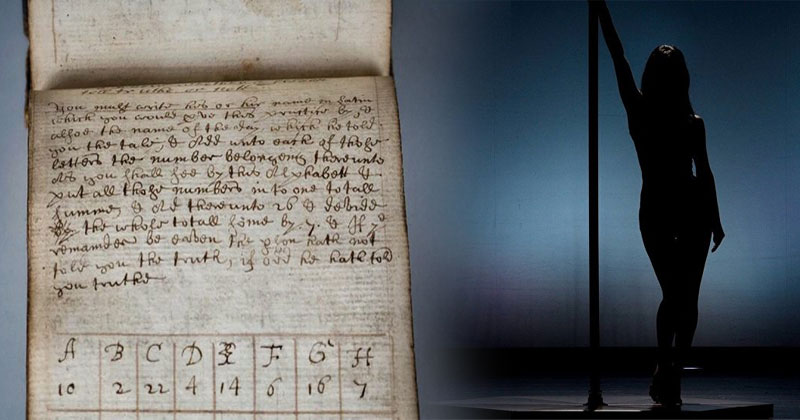 tell truthe or not
You must write his or her name in Latin
which you would prove this practice by, &
allsoe the name of the day which he told
you the tale, & Add unto each of those
letters the number belonging thereunto
As you shall see by this Alphabett &
put all those numbers in to one totall
summe, & Ad thereunto 26 & devide
the whole totall sume by .7. & If ye
remainder be eaven the pson hath not
told you the truth, if odd he hath told
you truthe
A B C D E F G H
10 2 22 4 14 6 16 7